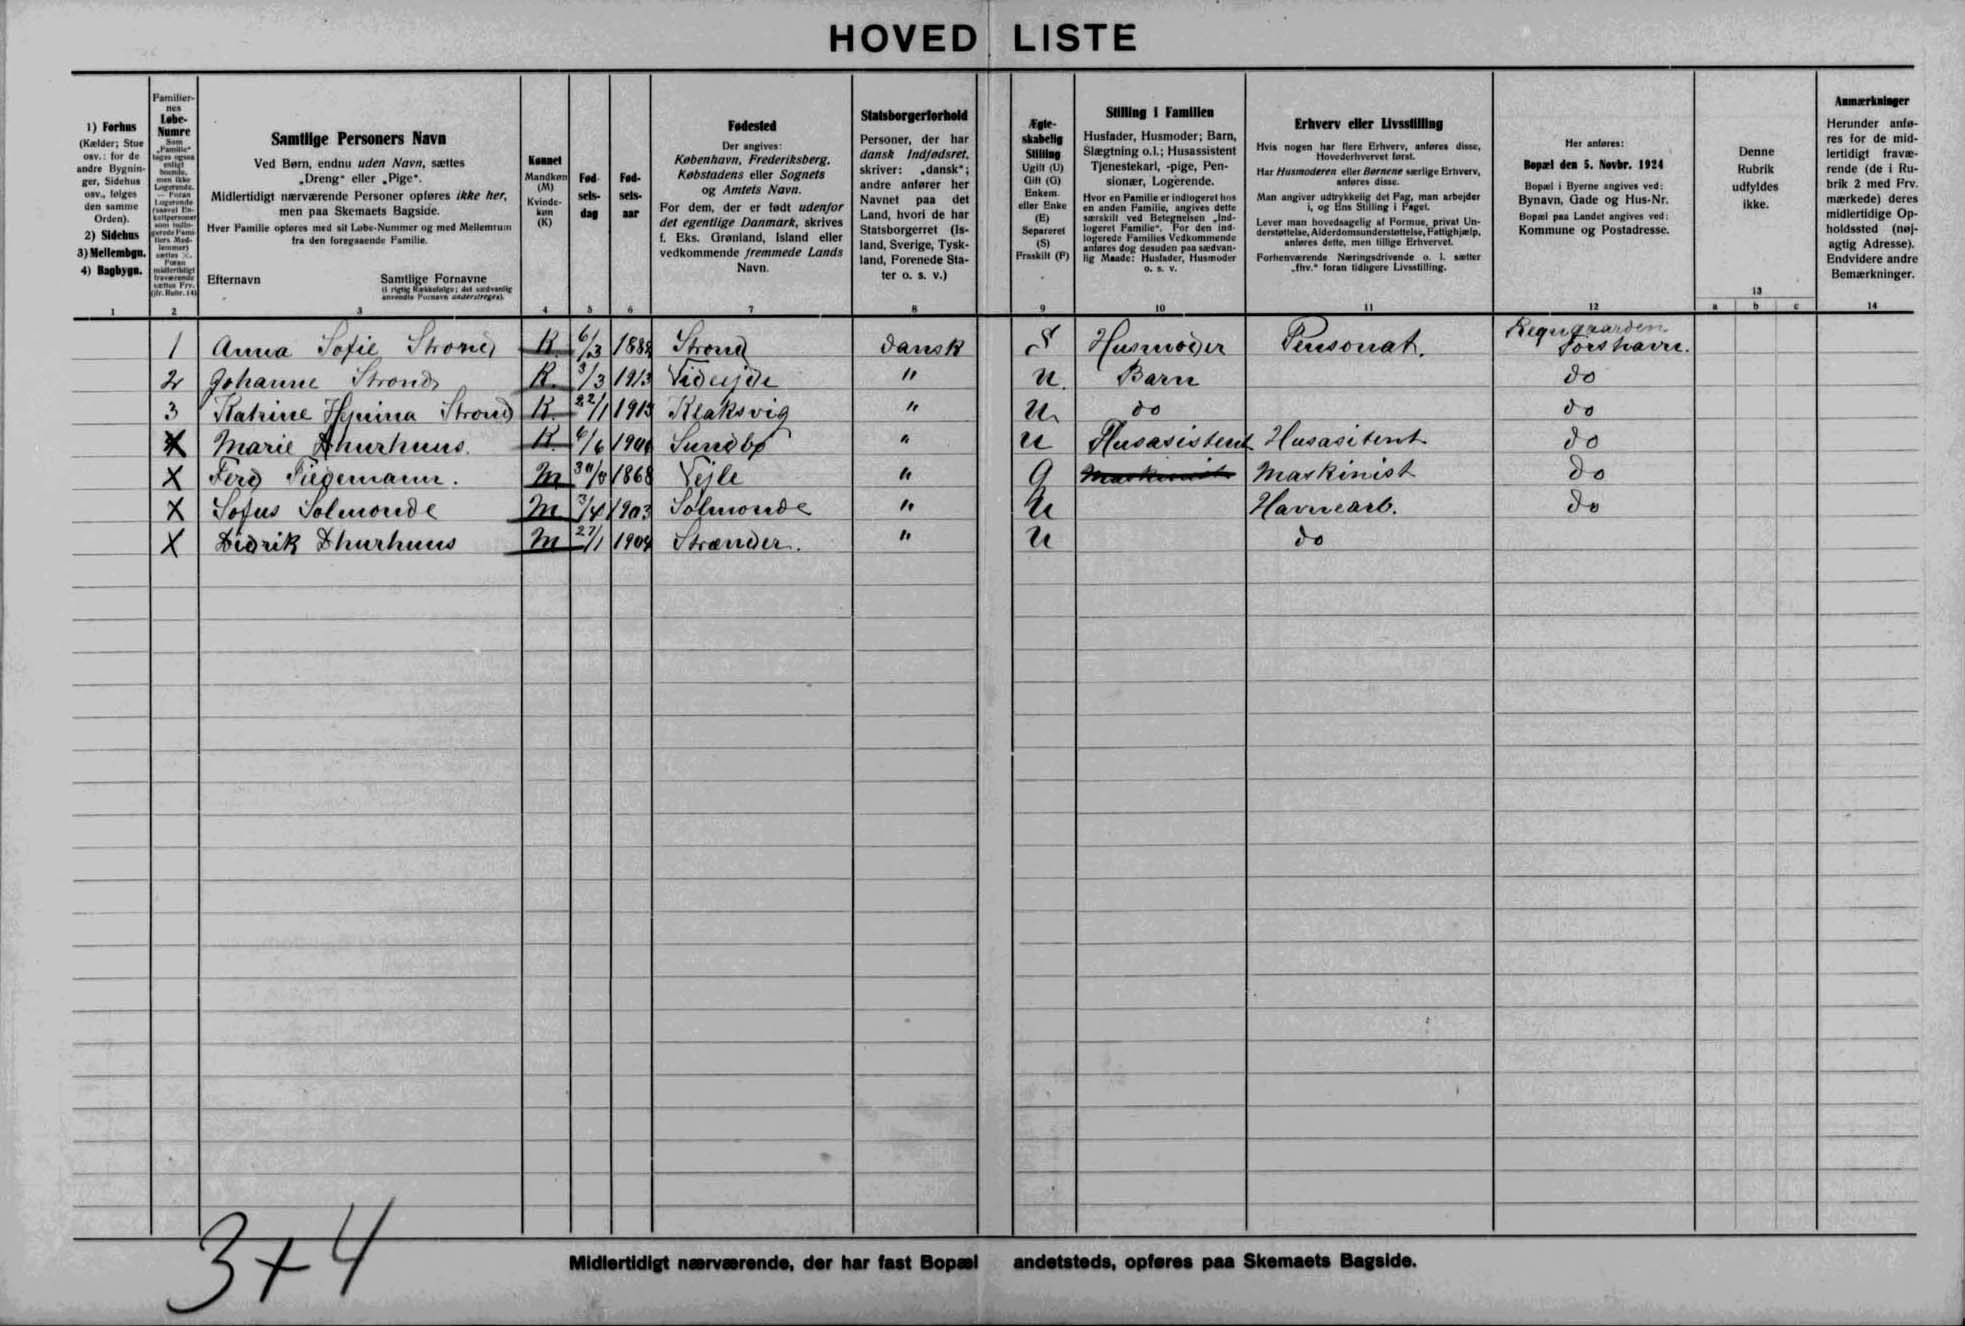 HOVED LISTE
1) Forhus
(Kælder; Stue
osv.: for de
andre Bygnin-
ger, Sidehus
osv., følges
den samme
Orden).
2) Sidehus
3) Mellembgn.
4) Bagbygn.
1
Familier-
nes
Løbe-
Numre
2
Samtlige Personers Navn
Ved Børn, endnu uden Navn, sættes
„Dreng“ eller „Pige“.
Midlertidigt nærværende Personer opføres ikke her,
men paa Skemaets Bagside.
Hver Familie opføres med sit Løbe-Nummer og med Mellemrum
fra den foregaaende Familie.
Efternavn Samtlige Fornavne
(i rigtig Rækkefølge; det sædvanlig
anvendte Fornavn understreges).
3
Kønnet
Mandkøn
(M)
Kvinde-
køn
(K)
4
Fød-
sels-
dag
5
Fød-
sels-
aar
6
Fødested
Der angives:
København, Frederiksberg,
Købstadens eller Sognets
og Amtets Navn.
For dem, der er født udenfor
det egentlige Danmark, skrives
f. Eks. Grønland, Island eller
vedkommende fremmede Lands
Navn.
7
Statsborgerforhold
Personer, der har
dansk Indfødsret,
skriver: „dansk“;
andre anfører her
Navnet paa det
Land, hvori de har
Statsborgerret (Is-
land, Sverige, Tysk-
land, Forenede Sta-
ter o. s. v.)
8
Ægte-
skabelig
Stilling
Ugift (U)
Gift (G)
Enkem.
eller Enke
(E)
Separeret
(S)
Fraskilt (F)
9
Stilling i Familien
Husfader, Husmoder; Barn,
Slægtning o.l.; Husassistent
Tjenestekarl, -pige, Pen-
sionær, Logerende.
Hvor en Familie er indlogeret hos
en anden Familie, angives dette
særskilt ved Betegnelsen „Ind-
logeret Familie“. For den ind-
logerede Families Vedkommende
anføres dog desuden paa sædvan-
lig Maade: Husfader, Husmoder
o. s. v.
10
Erhverv eller Livsstilling
Hvis nogen har flere Erhverv, anføres disse,
Hovederhvervet først.
Har Husmoderen eller Børnene særlige Erhverv,
anføres disse.
Man angiver udtrykkelig det Fag, man arbejder
i, og Ens Stilling i Faget.
Lever man hovedsagelig af Formue, privat Un-
derstøttelse, Alderdomsunderstøttelse, Fattighjælp,
anføres dette, men tillige Erhvervet.
Forhenværende Næringsdrivende o. l. sætter
„fhv.“ foran tidligere Livsstilling.
11
Her anføres:
Bopæl den 5. Novbr. 1924
Bopæl i Byerne angives ved:
Bynavn, Gade og Hus-Nr.
Bopæl paa Landet angives ved:
Kommune og Postadresse.
12
Denne
Rubrik
udfyldes
ikke.
13
a b c
Anmærkninger
Herunder anfø-
res for de mid-
lertidigt fravæ-
rende (de i Ru-
brik 2 med Frv.
mærkede) deres
midlertidige Op-
holdssted (nøj-
agtig Adresse).
Endvidere andre
Bemærkninger.
14
1 Anna Sofie Strond K 6/3 Strond dansk S Husmoder Pensonat. Torshavn.
2 Johanne Strond K. 3/3 1913 Videjde " U. Barn do
3 Katrine Strond K. 22/1 Klaksvig " U. do do
X Marie Dhurhuus. K. 6/6 Sundbø " U Husasistent Husasitent do
X Ferd Tiedemann. M 1868 Vejle " G Maskinist Maskinist do
X Sofus Solmonde M 3/4 1903 Solmonde " U Havnearb. do
X Didrik Dhurhuus M 27/1 1904 Strænder. " U do
3+4
Midlertidigt nærværende, der har fast Bopæl andetsteds, opføres paa Skemaets Bagside.